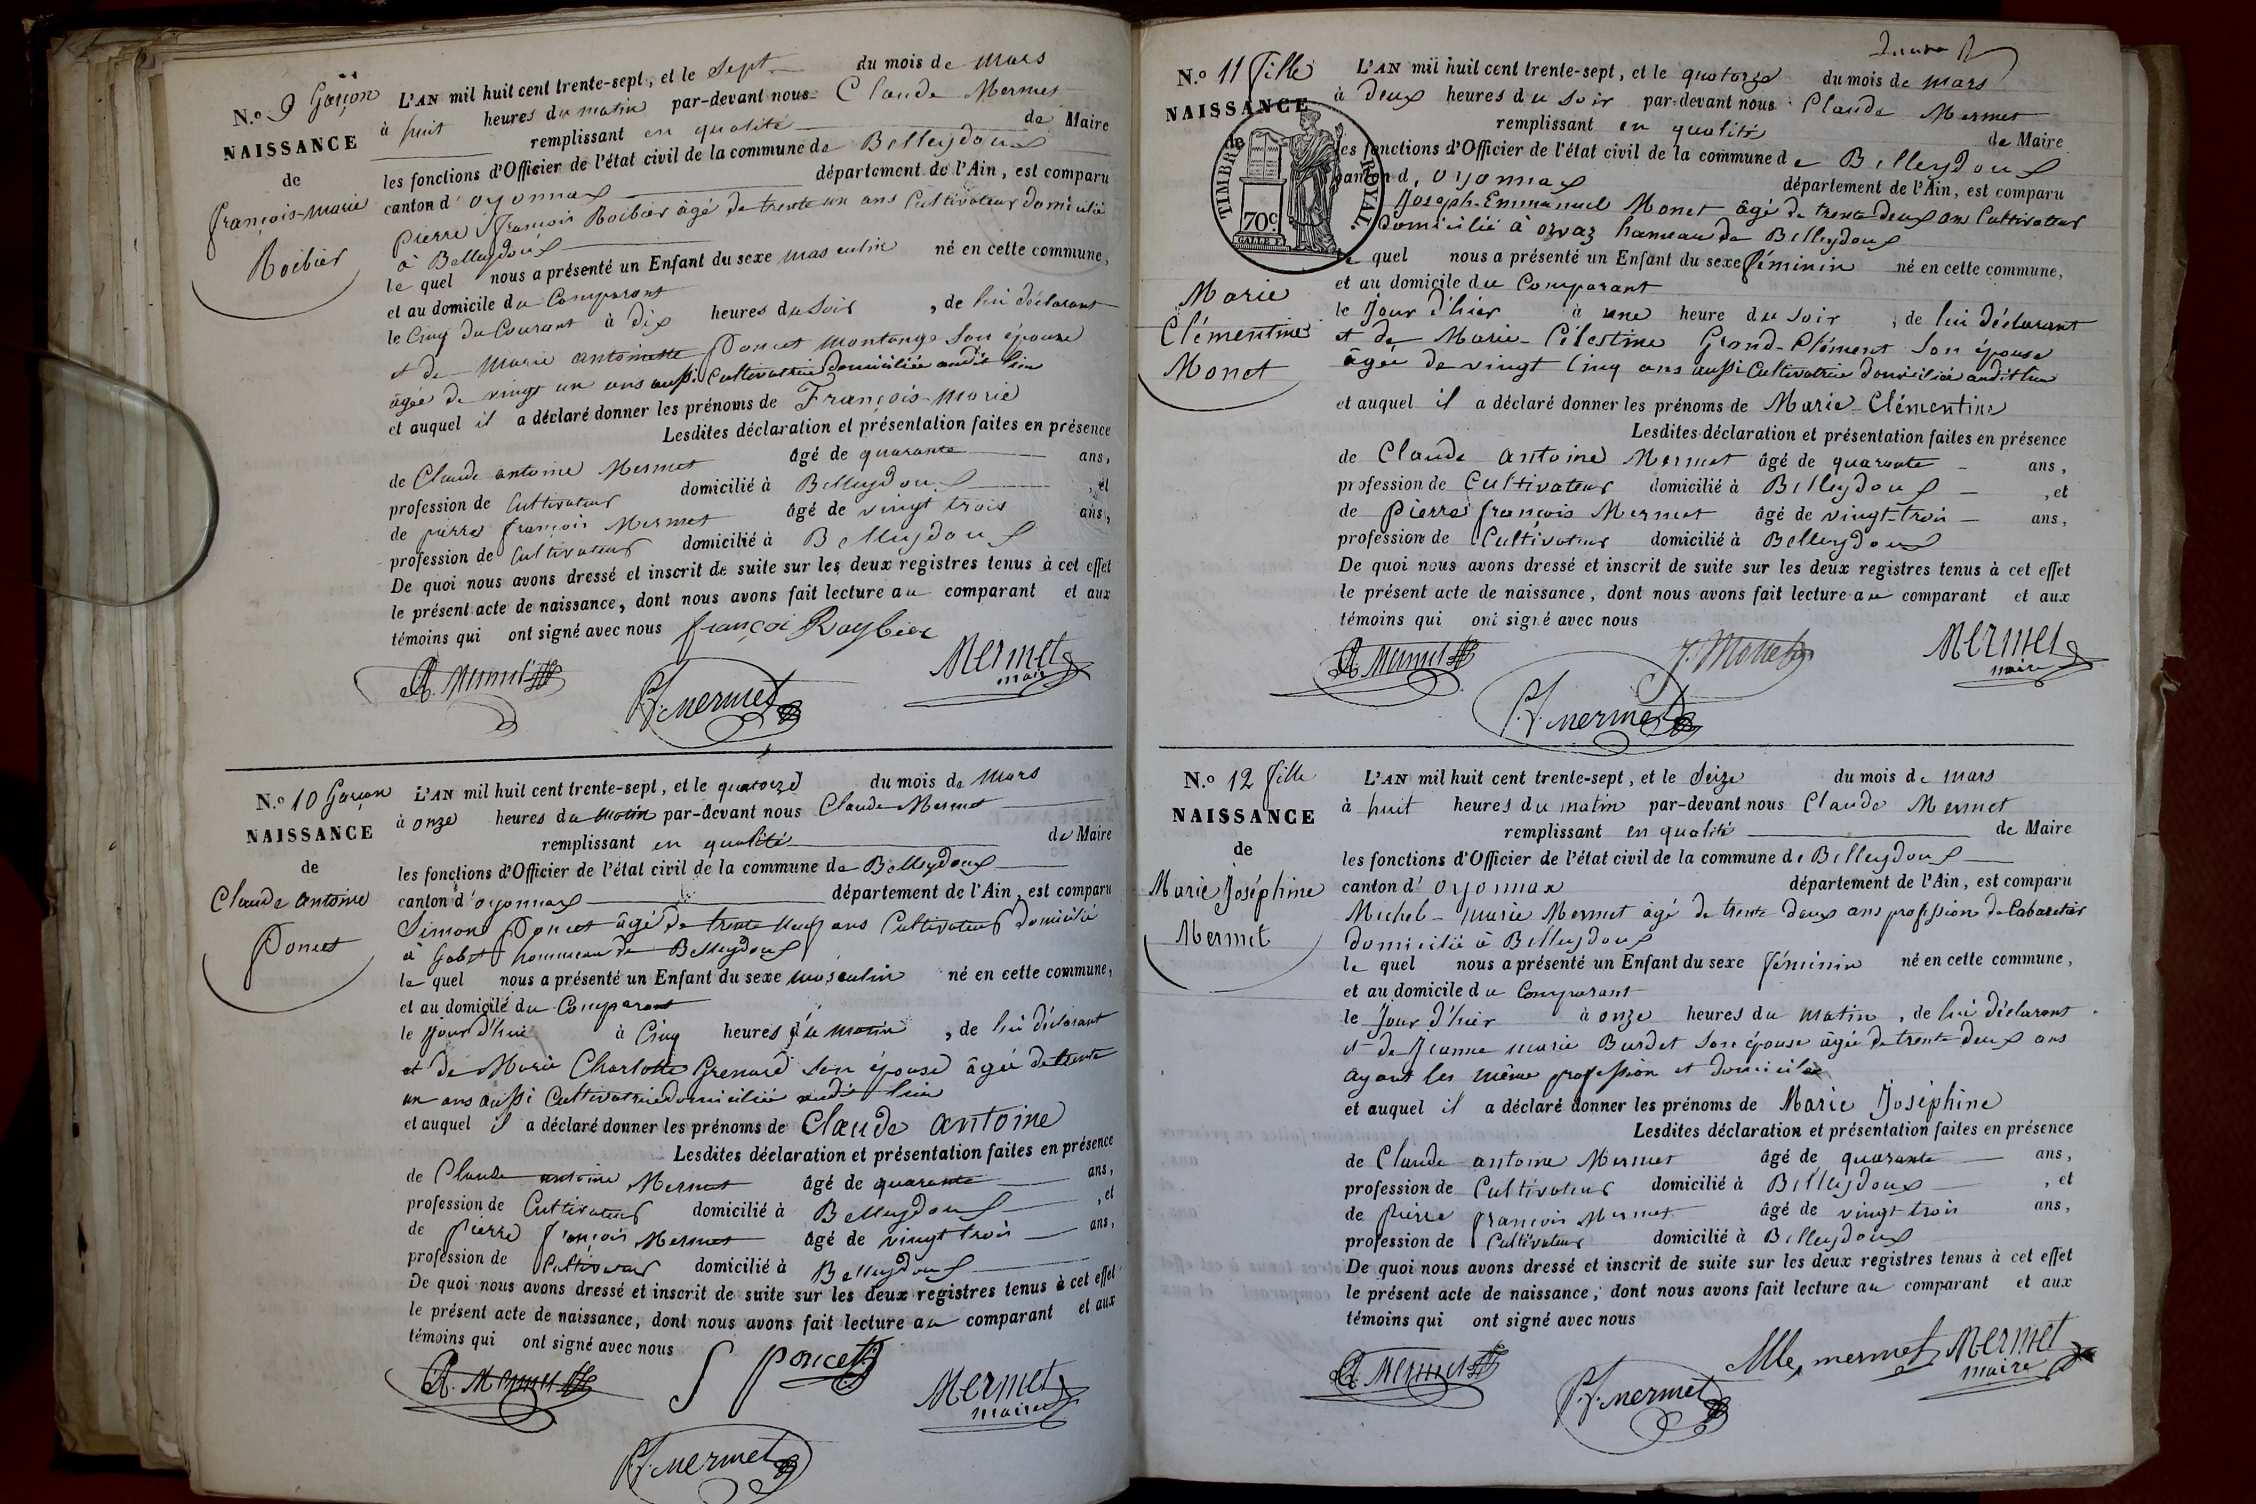 N.º 9 Garçon
NAISSANCE
de
françois-marie
Roibier
L'AN mil huit cent trente-sept, et le Sept du mois de Mars
à huit heures du matin par-devant nous Claude Mermet
remplissant en qualité de Maire
les fonctions d'Officier de l'état civil de la commune de Belleydoux
canton d'oyonnax département de l'Ain, est comparu
pierre françois Roibier âgé de trente un ans Cultivateur domicilié
à Belleydoux
le quel nous a présenté un Enfant du sexe masculin né en cette commune,
et au domicile du Comparant
le Cinq du Courant à dix heures du Soir, de lui déclarant
et de Marie antoinette Poncet montange Son épouse
âgée de vingt un ans aussi Cultivatrice domiciliée audit lieu
et auquel il a déclaré donner les prénoms de François-Marie
Lesdites déclaration et présentation faites en présence
de Claude antoine Mermet âgé de quarante ans,
profession de Cultivateur domicilié à Belleydoux, et
de pierre françois Mermet âgé de vingt trois ans,
profession de Cultivateur domicilié à Belleydoux
De quoi nous avons dressé et inscrit de suite sur les deux registres tenus à cet effet
le présent acte de naissance, dont nous avons fait lecture au comparant et aux
témoins qui ont signé avec nous françoi Roybier
A. Mermet P.f. mermet Mermet
maire
N.º 10 Garçon
NAISSANCE
de
Claude antoine
Poncet
L'AN mil huit cent trente-sept, et le quatorze du mois de Mars
à onze heures du matin par-devant nous Claude Mermet
remplissant en qualité de Maire
les fonctions d'Officier de l'état civil de la commune de Belleydoux
canton d'oyonnax département de l'Ain, est comparu
Simon Poncet âgé de trente neuf ans Cultivateur domicilié
à Gobet hammeau de Belleydoux
le quel nous a présenté un Enfant du sexe masculin né en cette commune,
et au domicile du Comparant
le Jour d'hui à Cinq heures du matin, de lui déclarant
et de Marie Charlotte Grenard son épouse âgée de trente
un ans aussi Cultivatrice domiciliée audit lieu
et auquel il a déclaré donner les prénoms de Claude antoine
Lesdites déclaration et présentation faites en présence
de Claude antoine Mermet âgé de quarante ans,
profession de Cultivateur domicilié à Belleydoux, et
de pierre françois Mermet âgé de vingt trois ans,
profession de Cultivateur domicilié à Belleydoux
De quoi nous avons dressé et inscrit de suite sur les deux registres tenus à cet effet
le présent acte de naissance, dont nous avons fait lecture au comparant et aux
témoins qui ont signé avec nous S poncet
A. Mermet Mermet
maire
P.f. mermet
N.º 11 fille
NAISSANCE
de
TIMBRE ROYAL.
70c
Marie
Clémentine
Monet
L'AN mil huit cent trente-sept, et le quatorze du mois de mars
à deux heures du soir par-devant nous Claude Mermet
remplissant en qualité de Maire
les fonctions d'Officier de l'état civil de la commune de Belleydoux
canton d'oyonnax département de l'Ain, est comparu
Joseph-Emmanuel Monet âgé de trente deux ans Cultivateur
domicilié à orvaz hameau de Belleydoux
le quel nous a présenté un Enfant du sexe féminin né en cette commune,
et au domicile du Comparant
le Jour d'hier à une heure du soir, de lui déclarant
et de Marie-Célestine Grand-Clément Son épouse
âgée de vingt Cinq ans aussi Cultivatrice domiciliée audit lieu
et auquel il a déclaré donner les prénoms de Marie-Clémentine
Lesdites déclaration et présentation faites en présence
de Claude antoine Mermet âgé de quarante ans,
profession de Cultivateur domicilié à Belleydoux, et
de pierre françois Mermet âgé de vingt-trois ans,
profession de Cultivateur domicilié à Belleydoux
De quoi nous avons dressé et inscrit de suite sur les deux registres tenus à cet effet
le présent acte de naissance, dont nous avons fait lecture au comparant et aux
témoins qui ont signé avec nous
A. Mermet J. Monet Mermet
maire
P.f. mermet
N.º 12 fille
NAISSANCE
de
Marie Joséphine
Mermet
L'AN mil huit cent trente-sept, et le Seize du mois de mars
à huit heures du matin par-devant nous Claude Mermet
remplissant en qualité de Maire
les fonctions d'Officier de l'état civil de la commune de Belleydoux
canton d'oyonnax département de l'Ain, est comparu
Michel-marie Mermet âgé de trente deux ans profession de Cabaretier
domicilié à Belleydoux
le quel nous a présenté un Enfant du sexe féminin né en cette commune,
et au domicile du Comparant
le Jour d'hier à onze heures du matin, de lui déclarant
et de Jeanne marie Burdet Son épouse âgée de trente deux ans
ayant les même profession et domicile
et auquel il a déclaré donner les prénoms de Marie Joséphine
Lesdites déclaration et présentation faites en présence
de Claude antoine Mermet âgé de quarante ans,
profession de Cultivateur domicilié à Belleydoux, et
de pierre françois Mermet âgé de vingt trois ans,
profession de Cultivateur domicilié à Belleydoux
De quoi nous avons dressé et inscrit de suite sur les deux registres tenus à cet effet
le présent acte de naissance, dont nous avons fait lecture au comparant et aux
témoins qui ont signé avec nous
A. Mermet P.f. mermet mermet Mermet
maire